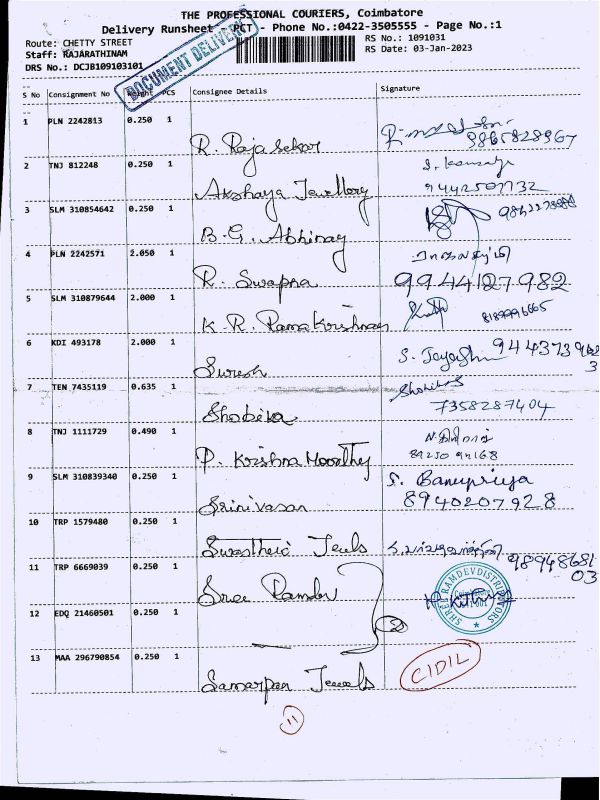 THE PROFESSIONAL COURIERS, Coimbatore
Delivery Runsheet - PCT - Phone No.:0422-3505555 - Page No.:1
Route: CHETTY STREET RS No.: 1091031
Staff: RAJARATHINAM RS Date: 03-Jan-2023
DRS No.: DCJB109103101
DOCUMENT DELIVERY
S No Consignment No Weight PCS Consignee Details Signature
1 PLN 2242813 0.250 1
R. Rajasekar 9865828967
2 TNJ 812248 0.250 1
Akshaya Jewellery
3 SLM 310854642 0.250 1
B.G. Abhinay
4 PLN 2242571 2.050 1
R. Swapna 9944127982
5 SLM 310879644 2.000 1
K.R. Ramakrishnan
6 KDI 493178 2.000 1
Suresh
7 TEN 7435119 0.635 1
Shobika 7358287404
8 TNJ 1111729 0.490 1
P. Krishna Moorthy
9 SLM 310839340 0.250 1 S. Banupriya
Srinivasan 8940207928
10 TRP 1579480 0.250 1
Jewels
11 TRP 6669039 0.250 1 9894868103
Sree SHREE RAMDEV DISTRIBUTORS
12 EDQ 21460501 0.250 1
2
13 MAA 296790854 0.250 1
Samarpan Jewels CIDIL
11